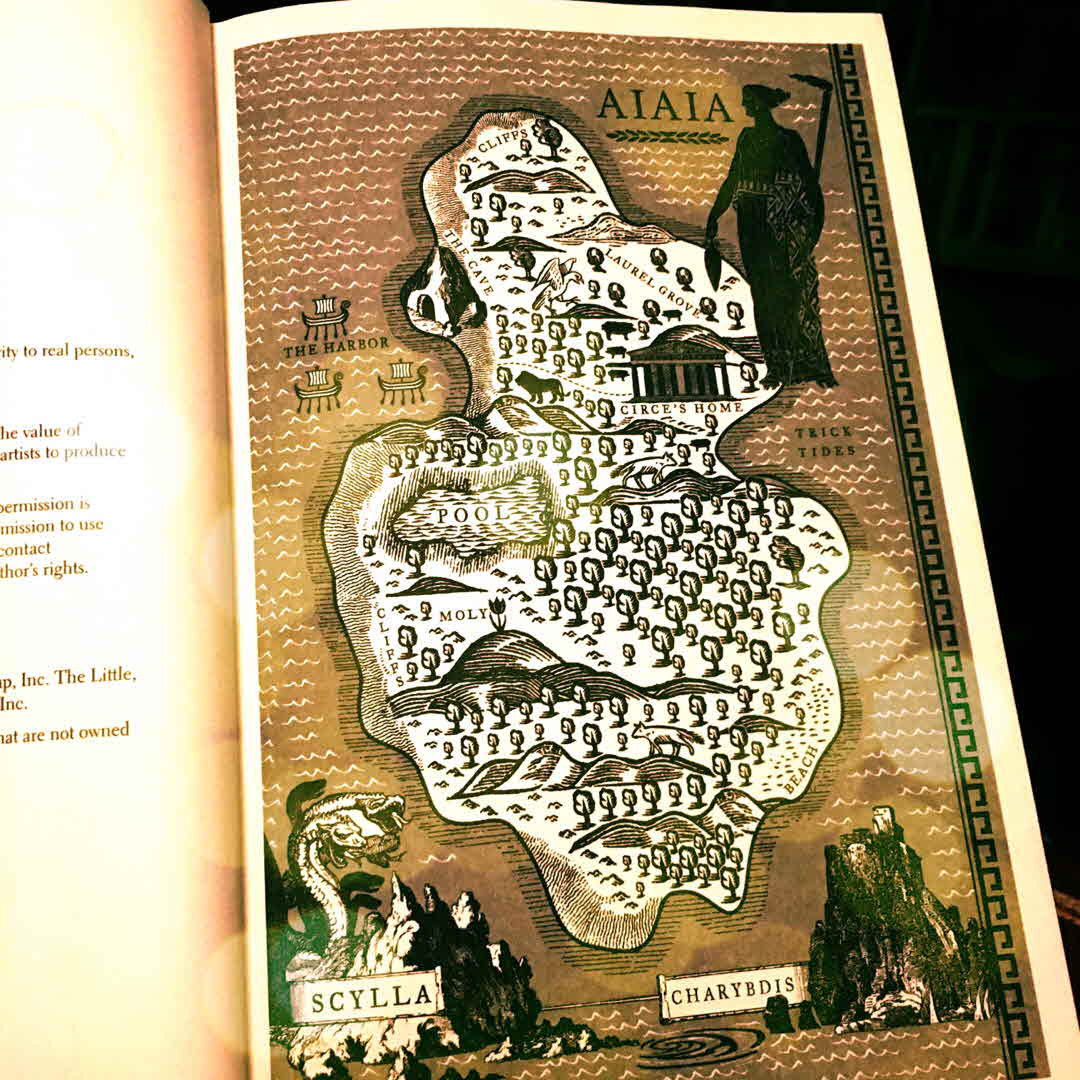 ity to real persons,
he value of
artists to produce
permission is
mission to use
contact
thor's rights.
up, Inc. The Little,
Inc.
hat are not owned
AIAIA
CLIFFS
THE CAVE
LAUREL GROVE
THE HARBOR
CIRCE'S HOME
TRICK
TIDES
POOL
MOLY
CLIFFS
BEACH
SCYLLA
CHARYBDIS